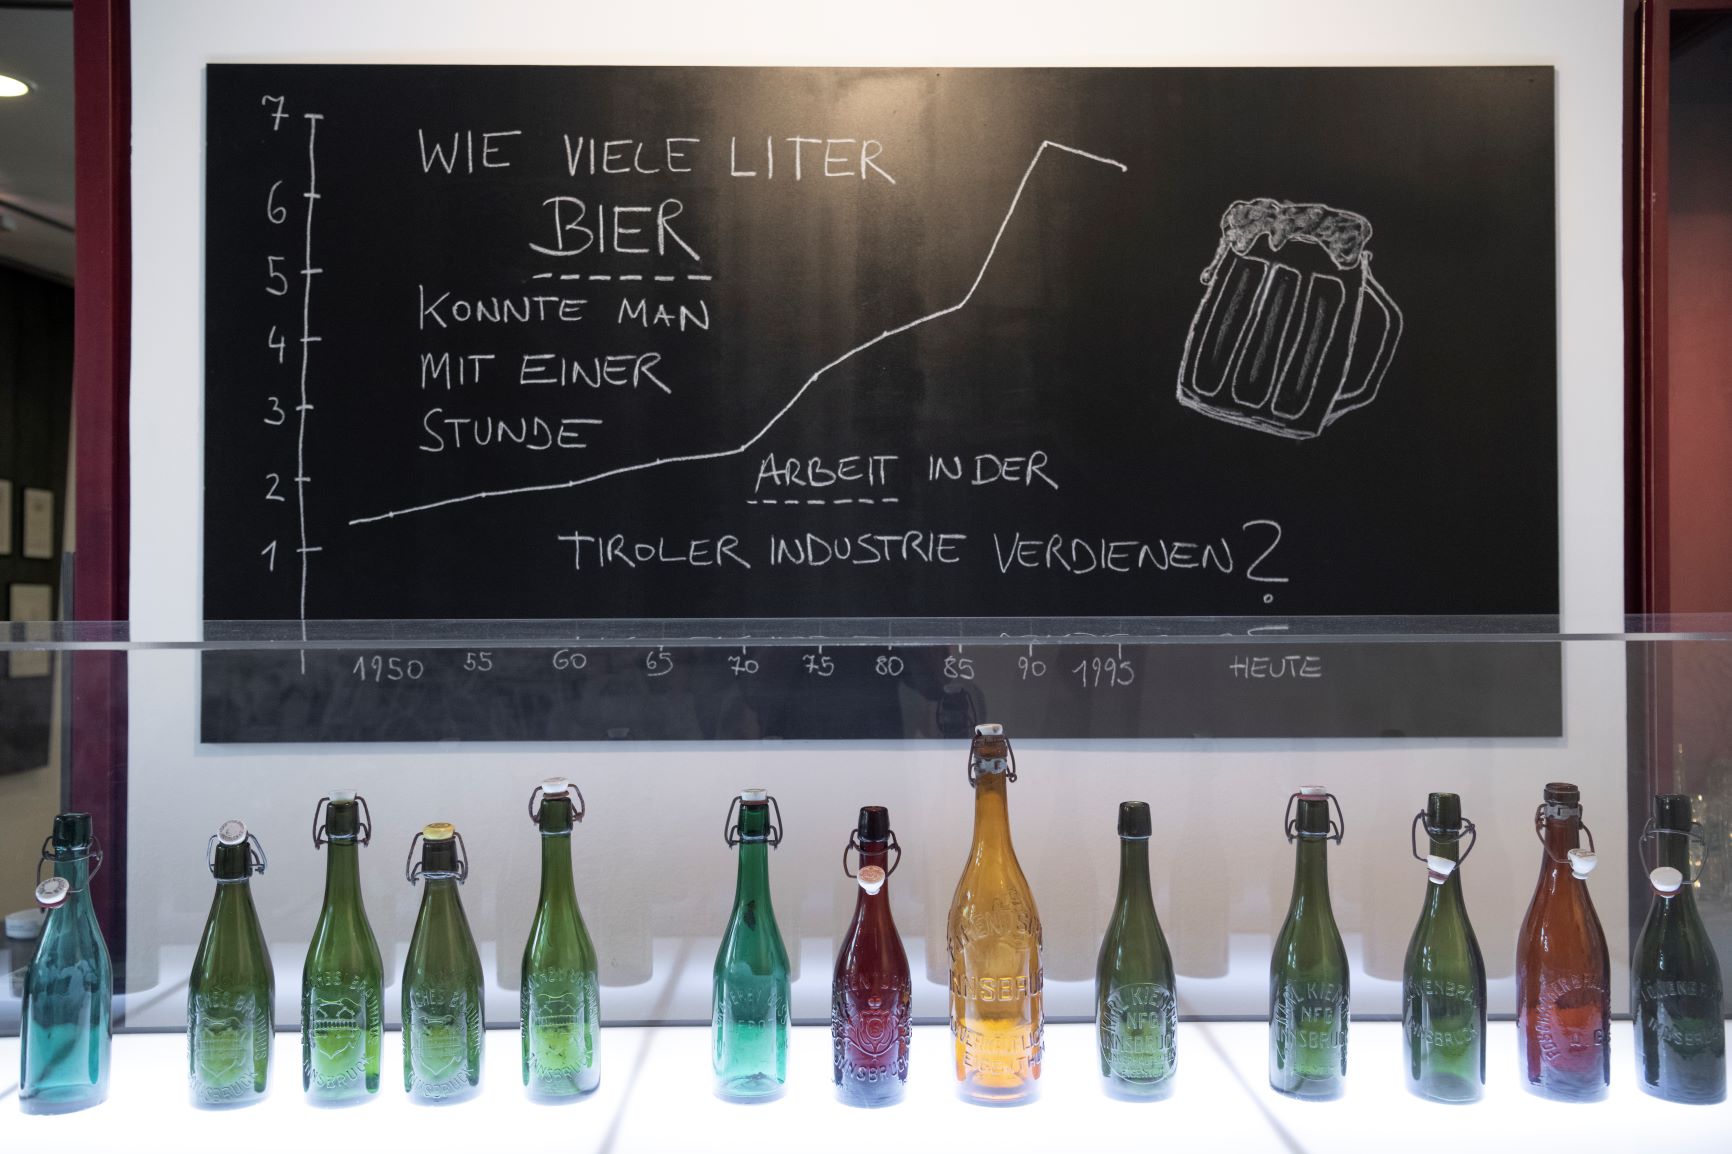 7
6
5
4
3
2
1
WIE VIELE LITER
BIER
KONNTE MAN
MIT EINER
STUNDE
ARBEIT IN DER
TIROLER INDUSTRIE VERDIENEN?
1950 55 60 65 70 75 80 85 90 1995 HEUTE
INNSBRUCK
KARL KIENER
NFG
INNSBRUCK
NFG